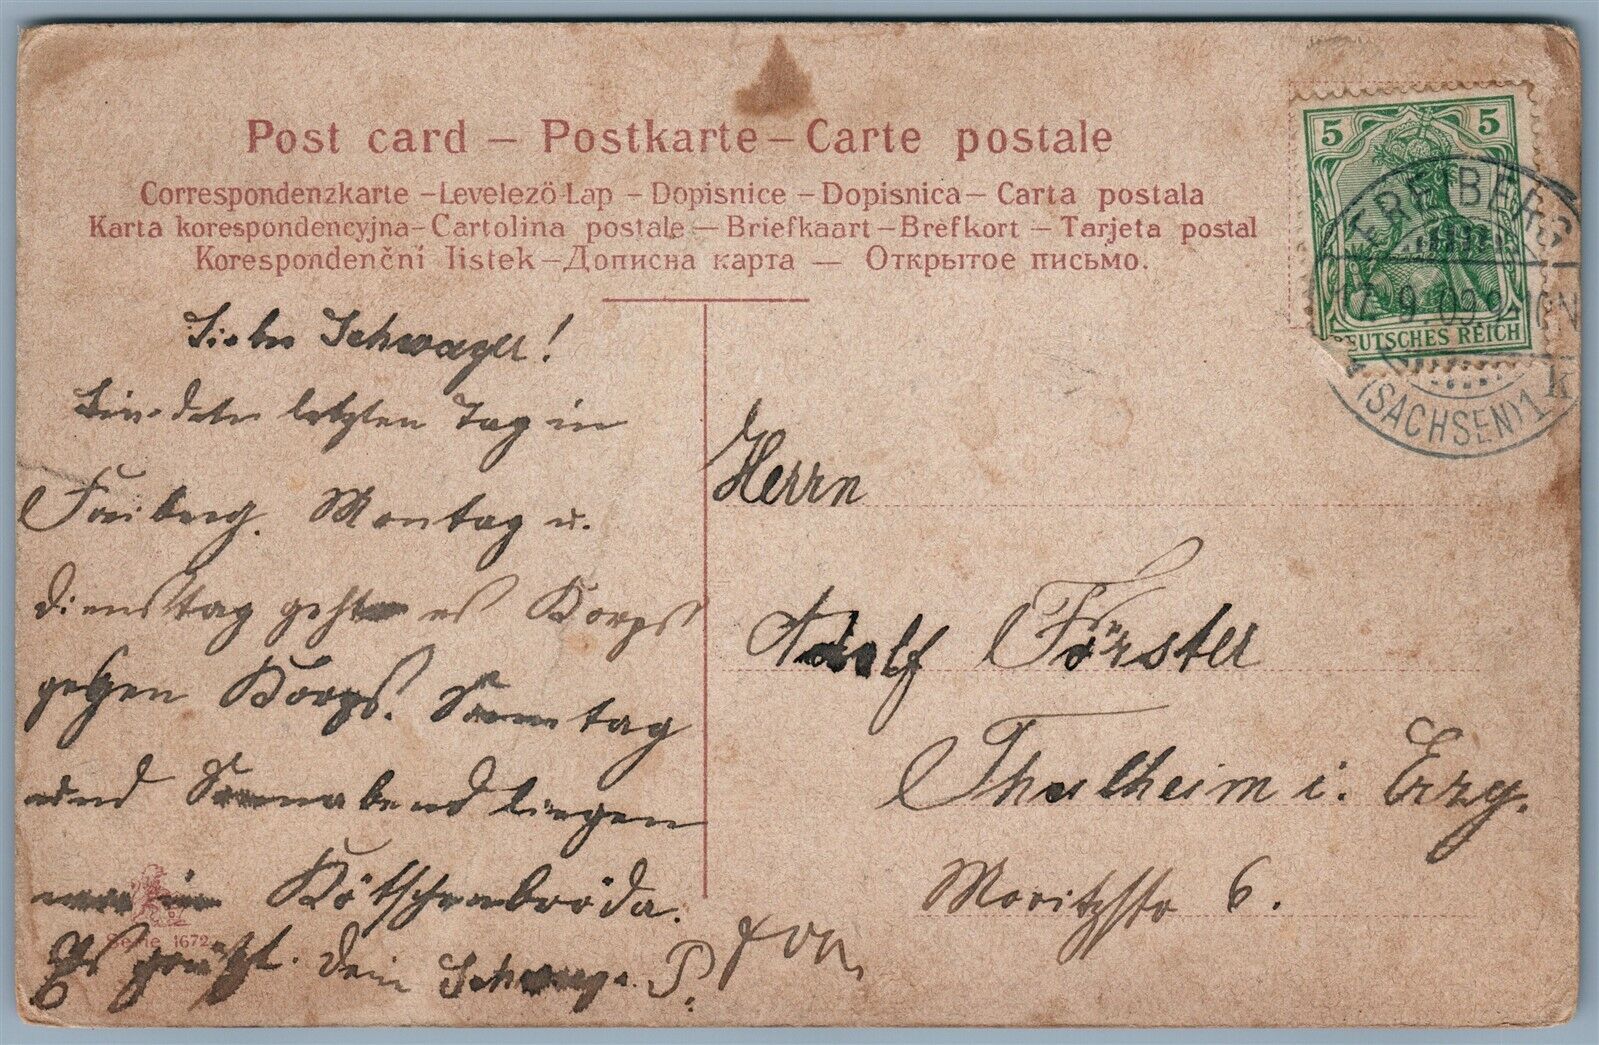 Post card – Postkarte – Carte postale
Correspondenzkarte – Levelező-Lap – Dopisnice – Dopisnica – Carta postala
Karta korespondencyjna – Cartolina postale – Briefkaart – Brefkort – Tarjeta postal
Korespondenční listek – Дописна карта — Открытое письмо.
5 5
DEUTSCHES REICH
FREIBERG
17. 9. 09. 9-10 N
(SACHSEN) 1 k
Lieber Schwager!
Sind den letzten Tag in
Freiberg. Montag u.
Dienstag geht es Korps
gegen Korps. Sonntag
und Sonnabend liegen
wir in Kötschenbroda.
Es grüßt Dein Schwager P.
Herrn
Adolf Förster
Thalheim i. Erzg.
Moritzstr 6.
Serie 1672